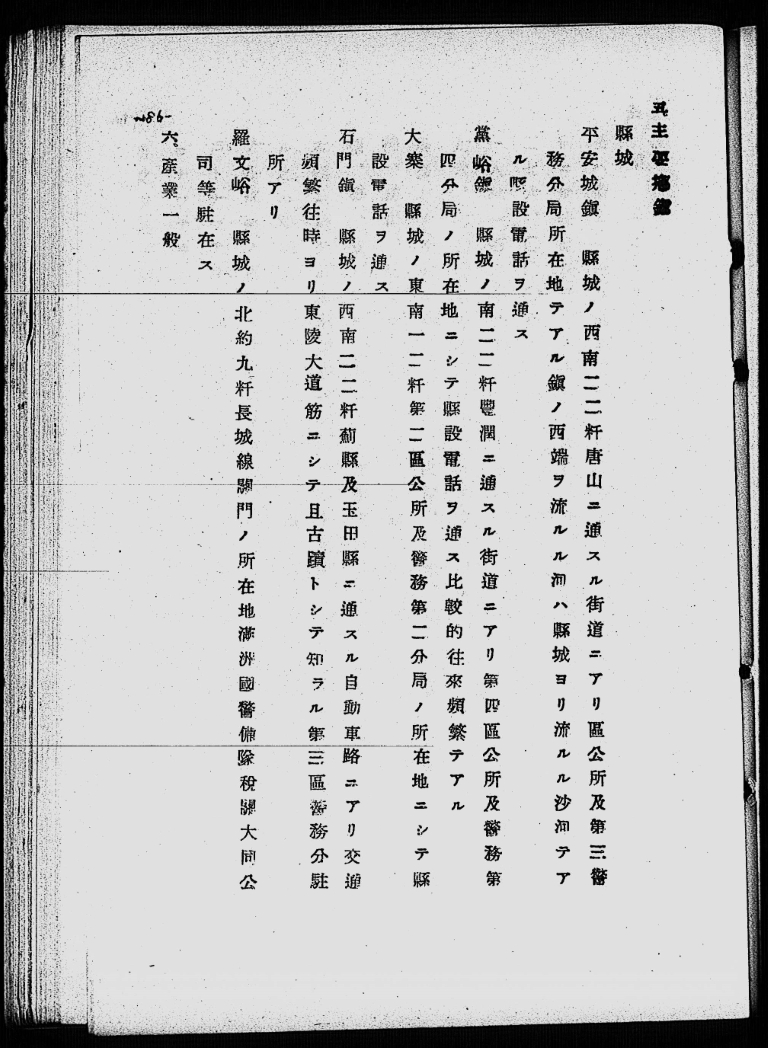 五、主要鄉鎭
縣城
平安城鎭 縣城ノ西南二二粁唐山ニ通スル街道ニアリ區公所及第三警
務分局所在地テアル鎭ノ西端ヲ流ルル河ハ縣城ヨリ流ルル沙河テア
ル縣設電話ヲ通ス
黨峪鎭 縣城ノ南二二粁豐潤ニ通スル街道ニアリ第四區公所及警務第
四分局ノ所在地ニシテ縣設電話ヲ通ス比較的往來頻繁テアル
大寨 縣城ノ東南一二粁第二區公所及警務第二分局ノ所在地ニシテ縣
設電話ヲ通ス
石門鎭 縣城ノ西南二二粁薊縣及玉田縣ニ通スル自動車路ニアリ交通
頻繁往時ヨリ東陵大道筋ニシテ且古蹟トシテ知ラル第三區警務分駐
所アリ
羅文峪 縣城ノ北約九粁長城線關門ノ所在地滿洲國警備隊稅關大同公
司等駐在ス
六、產業一般
-286-